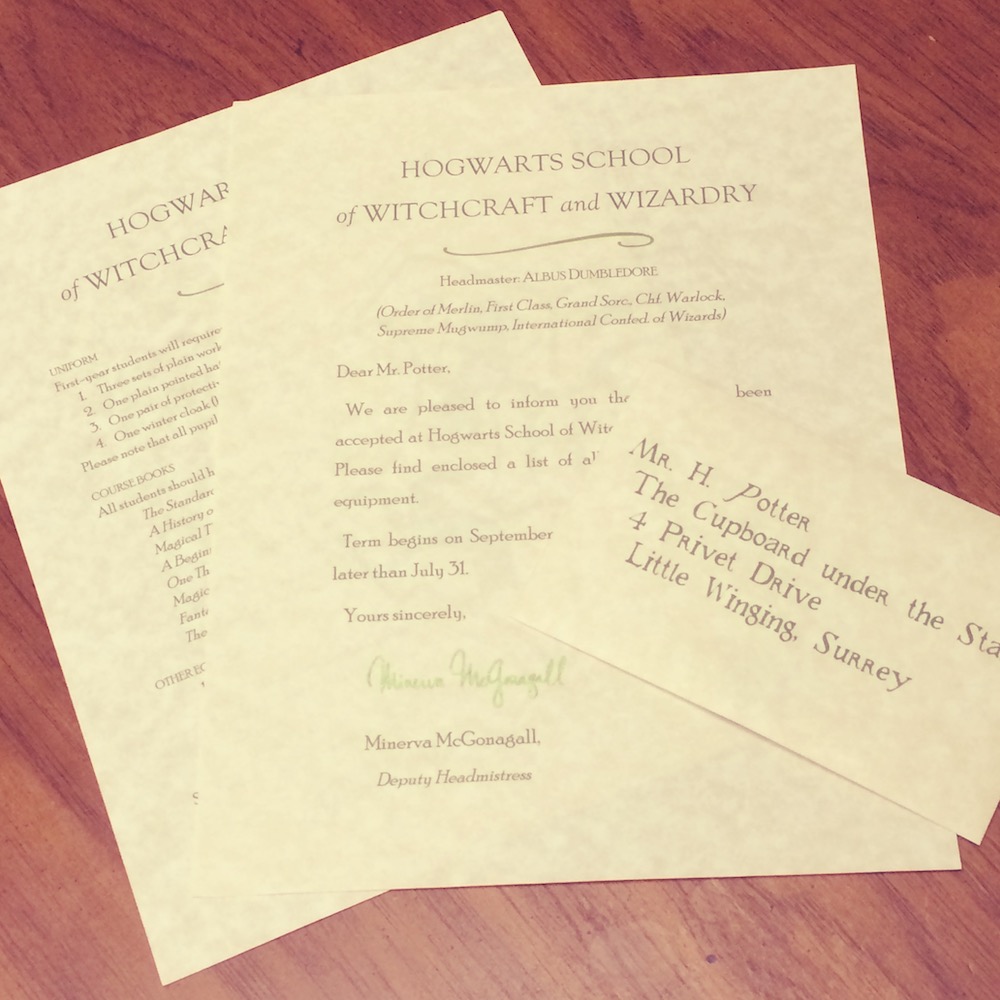 HOGWARTS SCHOOL
of WITCHCRAFT and WIZARDRY
Headmaster: ALBUS DUMBLEDORE
(Order of Merlin, First Class, Grand Sorc., Chf. Warlock,
Supreme Mugwump, International Confed. of Wizards)
Dear Mr. Potter,
We are pleased to inform you been
accepted at Hogwarts School of
Please find enclosed a list of
equipment.
Term begins on September
later than July 31.
Yours sincerely,
Minerva McGonagall
Minerva McGonagall,
Deputy Headmistress
Mr. H. Potter
The Cupboard under the Sta
4 Privet Drive
Little Winging, Surrey
HOGWAR
of WITCHCRA
UNIFORM
First-year students will require
1. Three sets of plain work
2. One plain pointed ha
3. One pair of protecti
4. One winter cloak (
Please note that all pupil
COURSE BOOKS
All students should h
The Standard
A History o
Magical T
A Begin
One Th
Magic
Fant
The
OTHER EQ